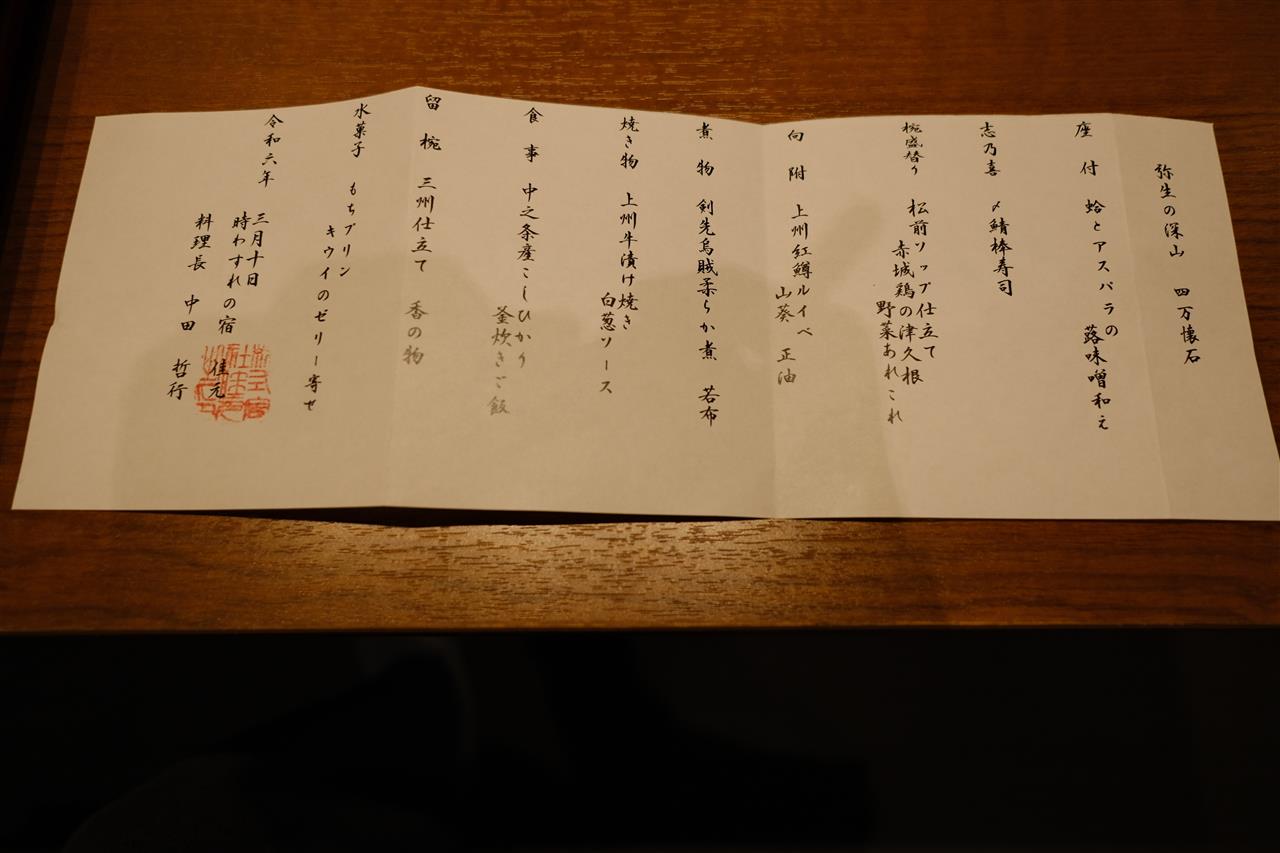 弥生の深山 四万懐石
座付 蛤とアスパラの
蕗味噌和え
志乃喜 〆鯖棒寿司
椀盛替り 松前ソップ仕立て
赤城鶏の津久根
野菜あれこれ
向附 上州紅鱒ルイベ
山葵 正油
煮物 剣先烏賊柔らか煮 若布
焼き物 上州牛漬け焼き
白葱ソース
食事 中之条産こしひかり
釜炊きご飯
留椀 三州仕立て 香の物
水菓子 もちプリン
キウイのゼリー寄せ
令和六年 三月十日
時わすれの宿 佳元
料理長 中田 哲行